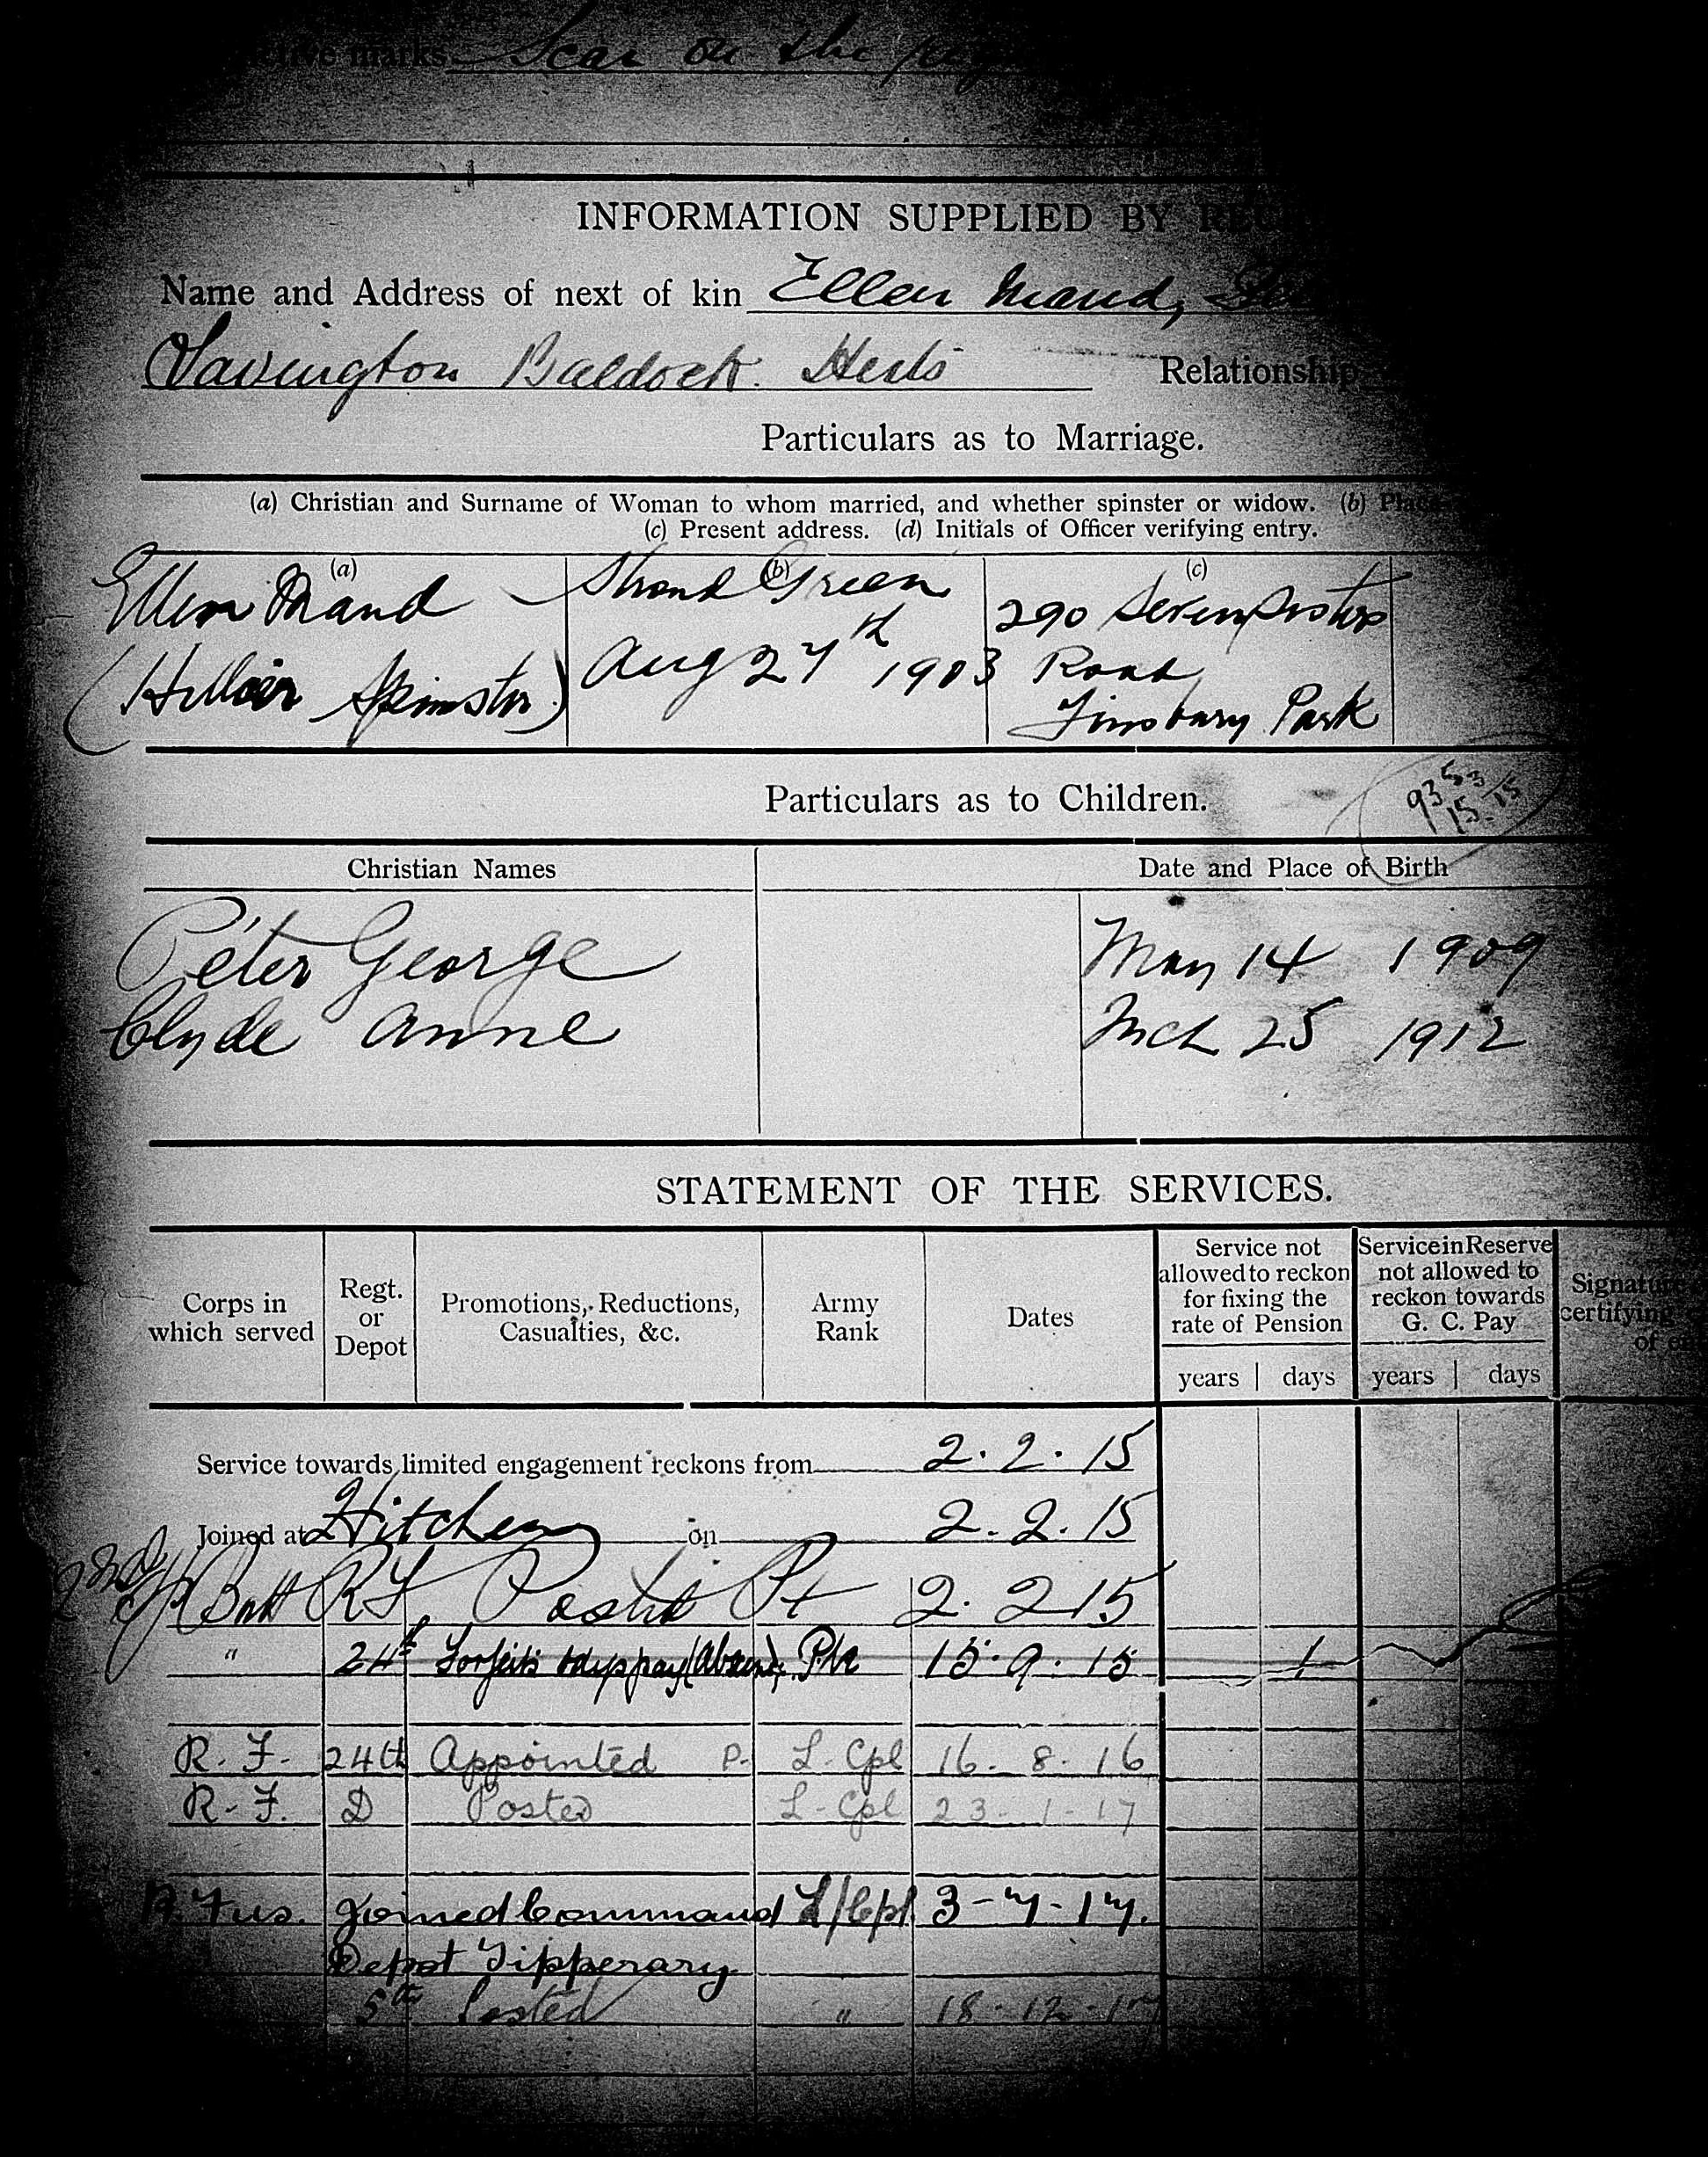 ctive marks Scar on the
INFORMATION SUPPLIED BY REC
Name and Address of next of kin Ellen Maud,
Baldock. Herts Relationship
Particulars as to Marriage.
(a) Christian and Surname of Woman to whom married, and whether spinster or widow. (b) Place
(c) Present address. (d) Initials of Officer verifying entry.
(a) (b) (c)
Ellen Maud Green 290 Seven Sisters
(Hillier Spinster) Aug 27th 1903 Road
Finsbury Park
Particulars as to Children.
Christian Names Date and Place of Birth
Peter George May 14 1909
Clyde Anne Mch 25 1912
STATEMENT OF THE SERVICES.
Corps in which served Regt. or Depot Promotions, Reductions, Casualties, &c. Army Rank Dates Service not allowed to reckon for fixing the rate of Pension Service in Reserve not allowed to reckon towards G. C. Pay Signatu certifying of e
years days years days
Service towards limited engagement reckons from 2. 2. 15
Joined at Hitchen on 2. 2. 15
Batt R.F. Posted Pt 2. 2 15
" 24th Forfeits pay (Absence) Pte 15. 9. 15 1
R. F. 24th Appointed P. L-Cpl 16- 8- 16
R. F. D Posted L-Cpl 23- 1- 17
R. Fus. Joined Command L/Cpl. 3-7-17.
Depot Tipperary.
5th Posted " 18-12-17